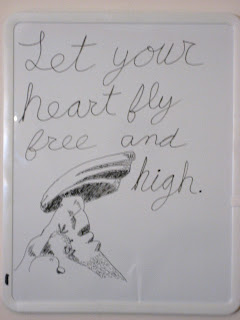 Let your
heart fly
free and
high.